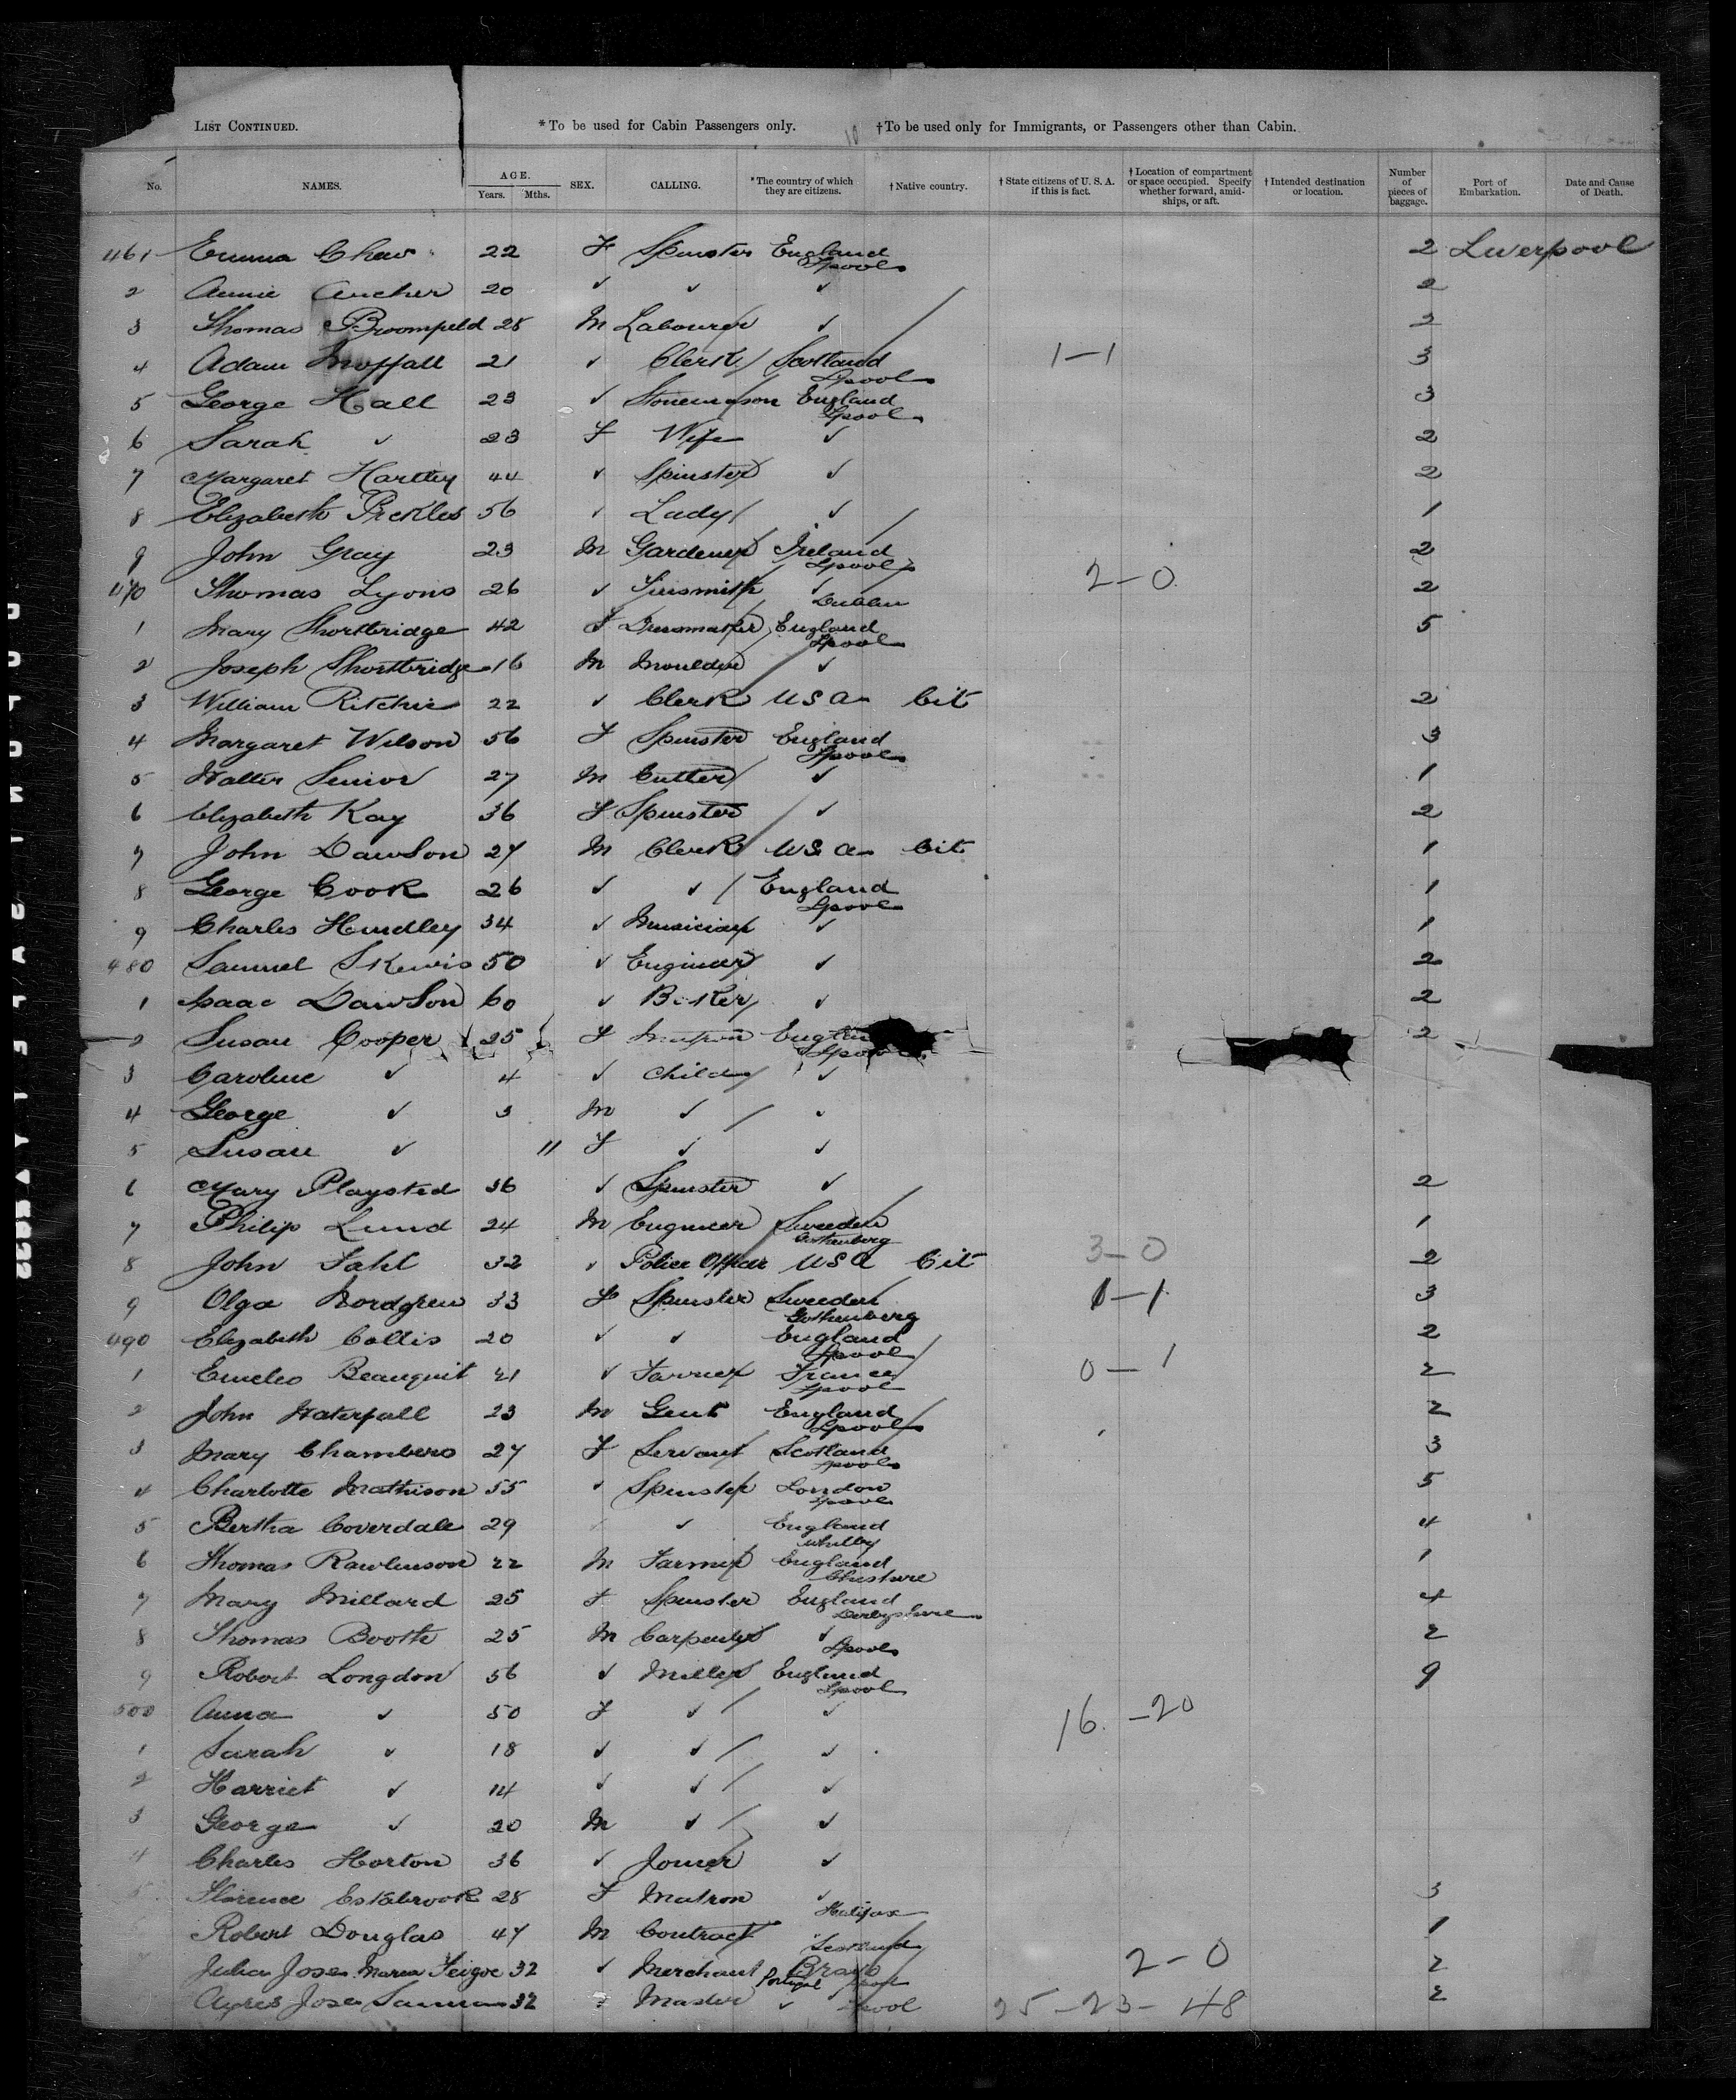 LIST CONTINUED. *To be used for Cabin Passengers only. †To be used only for Immigrants, or Passengers other than Cabin.
No. NAMES. AGE. Years. Mths. SEX. CALLING. *The country of which they are citizens. †Native country. †State citizens of U. S. A. if this is fact. †Location of compartment or space occupied. Specify whether forward, amidships, or aft. †Intended destination or location. Number of pieces of baggage. Port of Embarkation. Date and Cause of Death.
461 Emma Chew 22 F Spinster England Lpool 2 Liverpool
2 Annie Archer 20 ✓ ✓ ✓ 2
3 Thomas Broomfield 28 M Labourer ✓ 2
4 Adam 21 ✓ Clerk Scotland Lpool 1-1 3
5 George Hall 23 ✓ Stonemason England Lpool 3
6 Sarah ✓ 23 F Wife ✓ 2
7 Margaret Hartley 44 ✓ Spinster ✓ 2
8 Elizabeth Pickles 56 ✓ Lady ✓ 1
9 John Gray 23 M Gardener Ireland Lpool 2
470 Thomas Lyons 26 ✓ Tinsmith ✓ Dublin 2-0 2
1 Mary Shortbridge 42 F Dressmaker England Lpool 5
2 Joseph Shortbridge 16 M Moulder ✓
3 William Ritchie 22 ✓ Clerk USA Cit 2
4 Margaret Wilson 56 F Spinster England Lpool 3
5 Walter Senior 27 M Cutter ✓ 1
6 Elizabeth Kay 36 F Spinster ✓ 2
7 John Dawson 27 M Clerk USA Cit 1
8 George Cook 26 ✓ ✓ England Lpool 1
9 Charles Hindley 34 ✓ Musician ✓ 1
480 Samuel Skewis 50 ✓ Engineer ✓ 2
1 Isaac Dawson 60 ✓ Baker ✓ 2
2 Susan Cooper 25 F Matron Lpool 2
3 Caroline ✓ 4 ✓ Child ✓
4 George ✓ 3 M ✓ ✓
5 Susan ✓ 11 F ✓ ✓
6 Mary Playsted 36 ✓ Spinster ✓ 2
7 Philip Lund 24 M Engineer Sweden Gothenberg 1
8 John Dahl 32 ✓ Police Officer USA Cit 3-0 2
9 Olga Nordgren 33 F Spinster Sweeden Gothenberg 1-1 3
490 Elizabeth Collis 20 ✓ ✓ England Lpool 2
1 Beauquit 21 ✓ France Lpool 0-1 2
2 John Waterfall 23 M Gent England Lpool 2
3 Mary Chambers 27 F Servant Scotland Lpool 3
4 Charlotte Mathison 55 ✓ Spinster London Lpool 5
5 Bertha Coverdale 29 ✓ ✓ England Whitby 4
6 Thomas Rawlinson 22 M Farmer England Cheshire 1
7 Mary Millard 25 F Spinster England Derbyshire 4
8 Thomas Booth 25 M Carpenter ✓ Lpool 2
9 Robert Longdon 56 ✓ Miller England Lpool 9
500 Anna ✓ 50 F ✓ ✓ 16-20
1 Sarah ✓ 18 ✓ ✓ ✓
2 Harriet ✓ 14 ✓ ✓ ✓
3 George ✓ 20 M ✓ ✓
4 Charles Horton 36 ✓ Joiner ✓
5 Florence Estabrook 28 F Matron ✓ Halifax 3
Robert Douglas 47 M Contract Scotland 1
Jose Maria 32 ✓ Merchant Portugal Lpool 2-0 2
Ayres Jose 32 Master ✓ Lpool 25-23-48 2